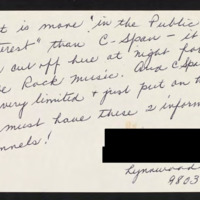 t is more "in the Public
erest" than C-Span - it
cut off here at night for
Rock music. And C Spa
very limited & just put on t
must have these 2 inform
nnels!
Lynnwood
9803